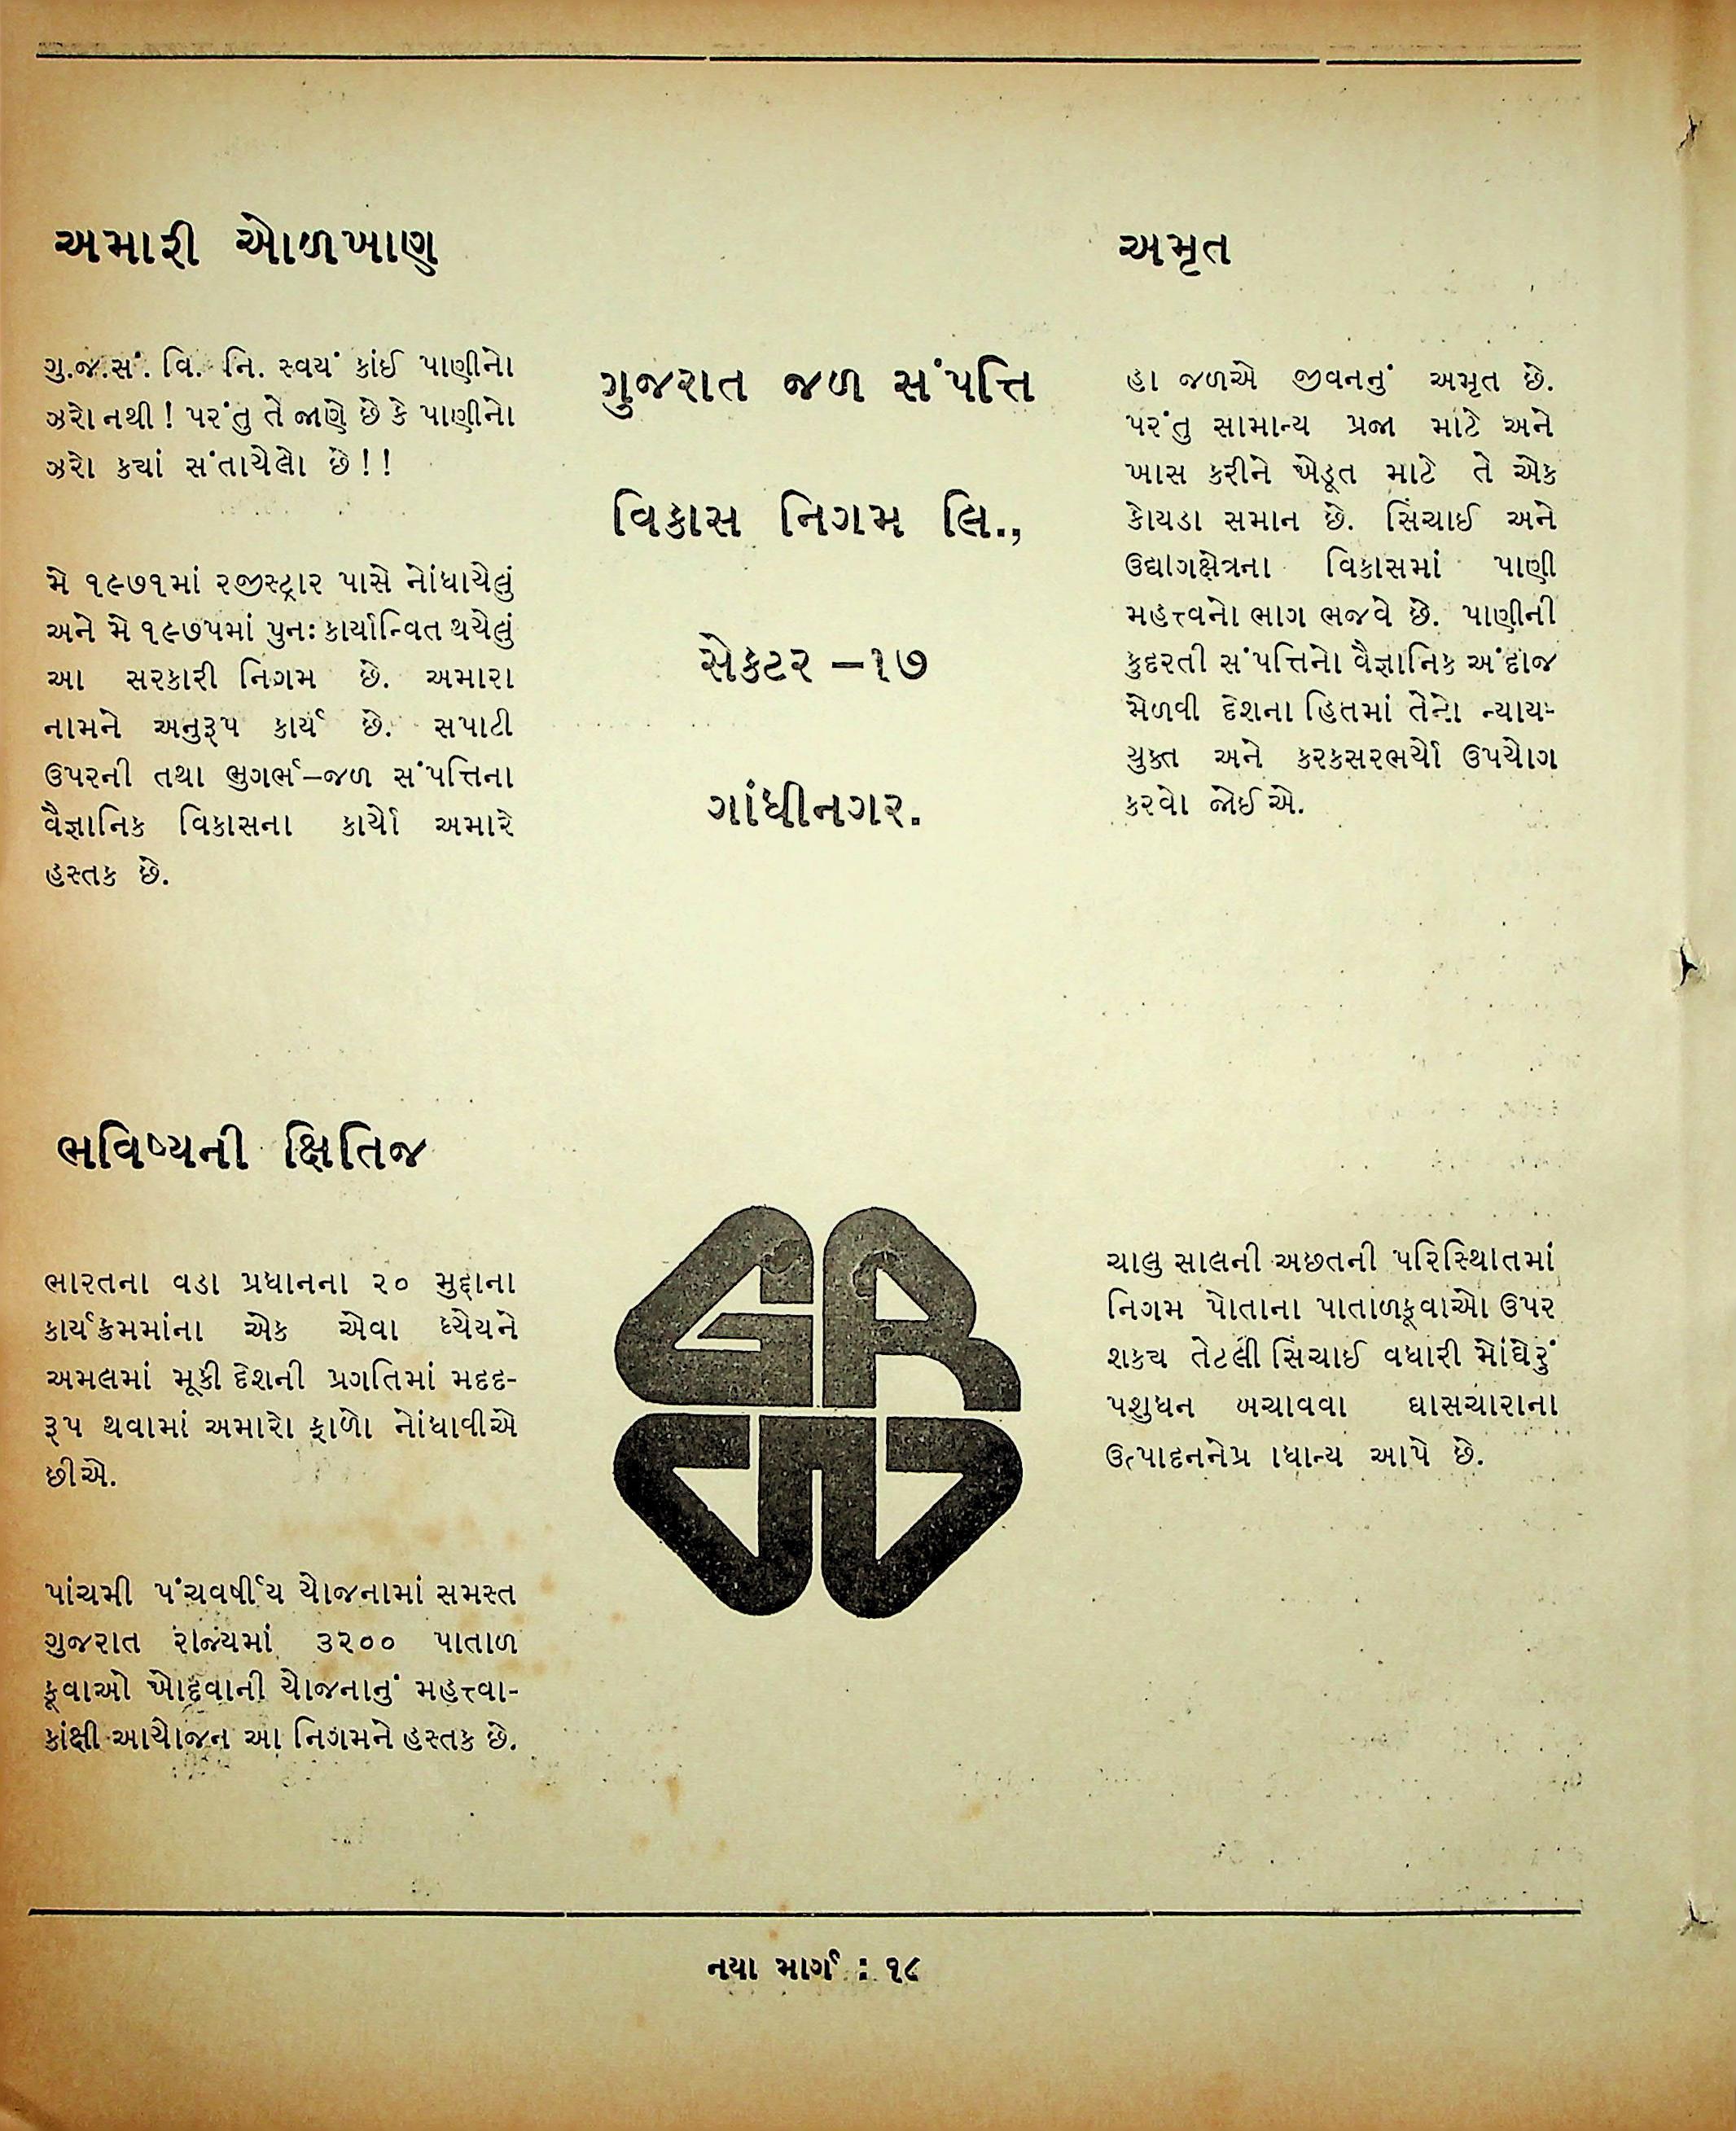 અમારી ઓળખાણ
ગુ.જ.સં. વિ. નિ. સ્વયં કાંઈ પાણીનો
ઝરો નથી ! પરંતુ તે જાણે છે કે પાણીનો
ઝરો ક્યાં સંતાયેલો છે ! !
મે ૧૯૭૧માં રજીસ્ટ્રાર પાસે નોંધાયેલું
અને મે ૧૯૭૫માં પુનઃ કાર્યાન્વિત થયેલું
આ સરકારી નિગમ છે. અમારા
નામને અનુરૂપ કાર્ય છે. સપાટી
ઉપરની તથા ભુગર્ભ–જળ સંપત્તિના
વૈજ્ઞાનિક વિકાસના કાર્યો અમારે
હસ્તક છે.
ગુજરાત જળ સંપત્તિ
વિકાસ નિગમ લિ.,
સેકટર –૧૭
ગાંધીનગર.
અમૃત
હા જળએ જીવનનું અમૃત છે.
પરંતુ સામાન્ય પ્રજા માટે અને
ખાસ કરીને ખેડૂત માટે તે એક
કોયડા સમાન છે. સિંચાઈ અને
ઉદ્યાગક્ષેત્રના વિકાસમાં પાણી
મહત્ત્વનો ભાગ ભજવે છે. પાણીની
કુદરતી સંપત્તિનો વૈજ્ઞાનિક અંદાજ
મેળવી દેશના હિતમાં તેનો ન્યાય-
યુક્ત અને કરકસરભર્યો ઉપયોગ
કરવો જોઈએ.
ભવિષ્યની ક્ષિતિજ
ભારતના વડા પ્રધાનના ૨૦ મુદ્દાના
કાર્યક્રમમાંના એક એવા ધ્યેયને
અમલમાં મૂકી દેશની પ્રગતિમાં મદદ-
રૂપ થવામાં અમારો ફાળો નોંધાવીએ
છીએ.
પાંચમી પંચવર્ષીય યોજનામાં સમસ્ત
ગુજરાત રાજ્યમાં ૩૨૦૦ પાતાળ
કૂવાઓ ખોદવાની યોજનાનું મહત્ત્વા-
કાંક્ષી આયોજન આ નિગમને હસ્તક છે.
ચાલુ સાલની અછતની પરિસ્થિાતમાં
નિગમ પોતાના પાતાળકૂવાઓ ઉપર
શક્ય તેટલી સિંચાઈ વધારી મોંઘેરું
પશુધન બચાવવા ઘાસચારાના
ઉત્પાદનનેપ્ર ાધાન્ય આપે છે.
નયા માર્ગ : ૧૮